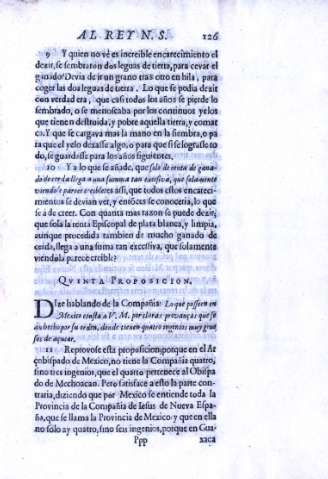 AL REY N. S. 126
9 Y quien no vè es increible encarecimiento el
dezir, se sembraron dos leguas de tierra, para cevar el
guarido? Devia de ir un grano tras otro en hila, para
coger las dos leguas de tierra. Lo que se podia dezir
con verdad era, que casi todos los años se pierde lo
sembrado, o se menoscaba por los continuos yelos
que tienen destruida, y pobre aquella tierra, y comar
ca. Y que se cargava mas la mano en la siembra, o pa
ra que el yelo dexasse algo, o para que si se lograsse to
do, se guardasse para los años siguientes.
10 Y a lo que se añade, que solo de renta de gana-
do de cerda llega a una summa tan excessiva, que solamente
viendose parece creible: assi, que todos estos encareci-
mientos se devian ver, y entõces se conoceria, lo que
se à de creer. Con quanta mas razon se puede dezir,
que sola la renta Episcopal de plata blanca, y limpia,
aunque procedida tambien de mucho ganado de
cerda, llega a una suma tan excessiva, que solamente
viendola parece creible?
QVINTA PROPOSICION.
Dize hablando de la Compañia: Lo que posseen en
Mexico consta a V. M. por claras provanças que se
an hecho por su orden, donde tienen quatro ingenios muy grue
sos de açucar.
11 Reprovòse esta proposicion porque en el Ar
çobispado de Mexico, no tiene la Compañia quatro,
sino tres ingenios, que el quarto pertenece al Obispa
do de Mechoacan. Pero satisface a esto la parte con-
traria, diziendo que por Mexico se entiende toda la
Provincia de la Compañia de Iesus de Nueva Espa-
ña, que se llama la Provincia de Mexico: y que en ella
no solo ay quatro, sino seis ingenios, porque en Gua-
Ppp xaca